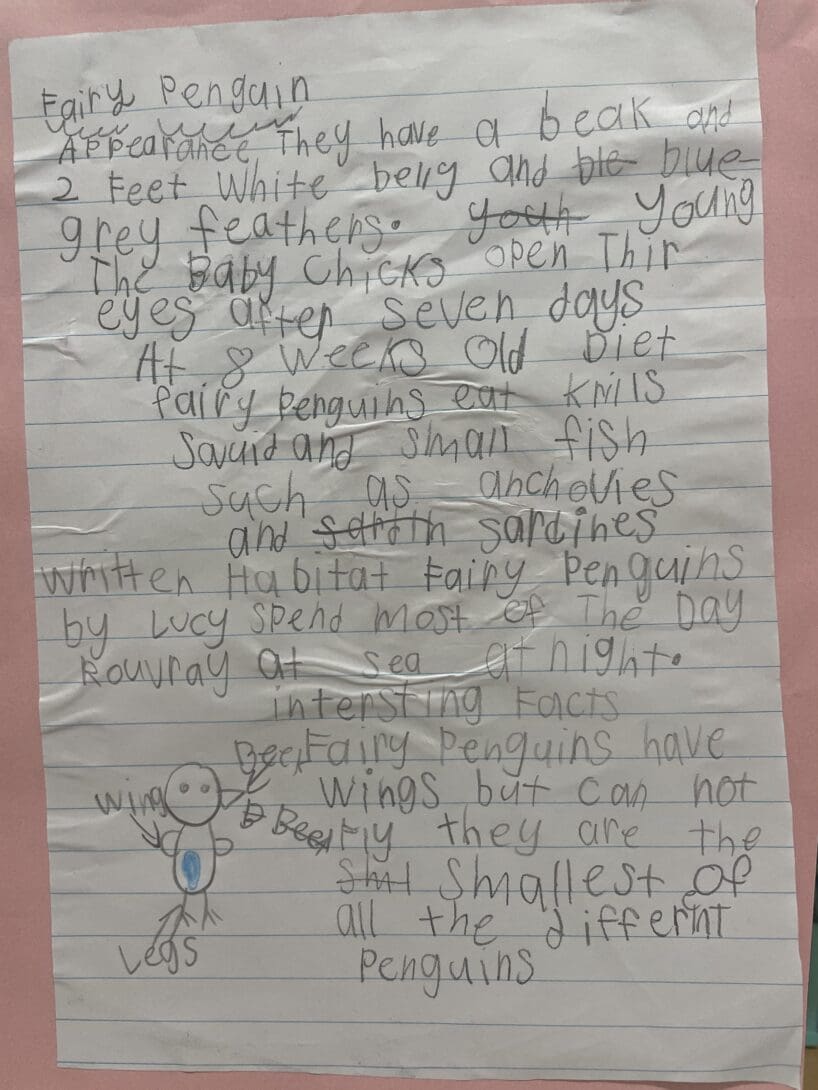 Fairy Penguin
Appearance They have a beak and
2 Feet White belly and ble blue-
grey feathers. youth young
The Baby Chicks open Thir
eyes after seven days
At 8 weeks old Diet
fairy penguins eat Krills
Squid and small fish
such as anchovies
and sardin sardines
Written Habitat Fairy Penguins
by Lucy spend most of The Day
Rouvray at sea at night.
intersting Facts
Beek Fairy Penguins have
Wing wings but can not
Beek Fly they are the
Sml smallest of
all the differnt
Legs
Penguins